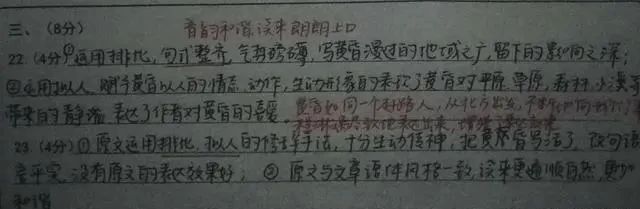 三、(8分) 音韵和谐,读来朗朗上口
22. (4分)①运用排比,句式整齐,气势磅礴,写黄昏漫过的地域之广,留下的影响之深;
②运用拟人,赋予黄昏以人的情态、动作,生动形象的表现了黄昏对平原、草原、森林、小溪等
带来的静谧,表达了作者对黄昏的喜爱。黄昏如同一个行路人,从北方出发,不断地向前行,
地表达出来,增强
23. (4分)①原文运用排比、拟人的修辞手法,十分生动传神,把黄昏写活了,改句语
言平实,没有原文的表达效果好;②原文与文章语体风格一致,读来更通顺自然,更加
和谐